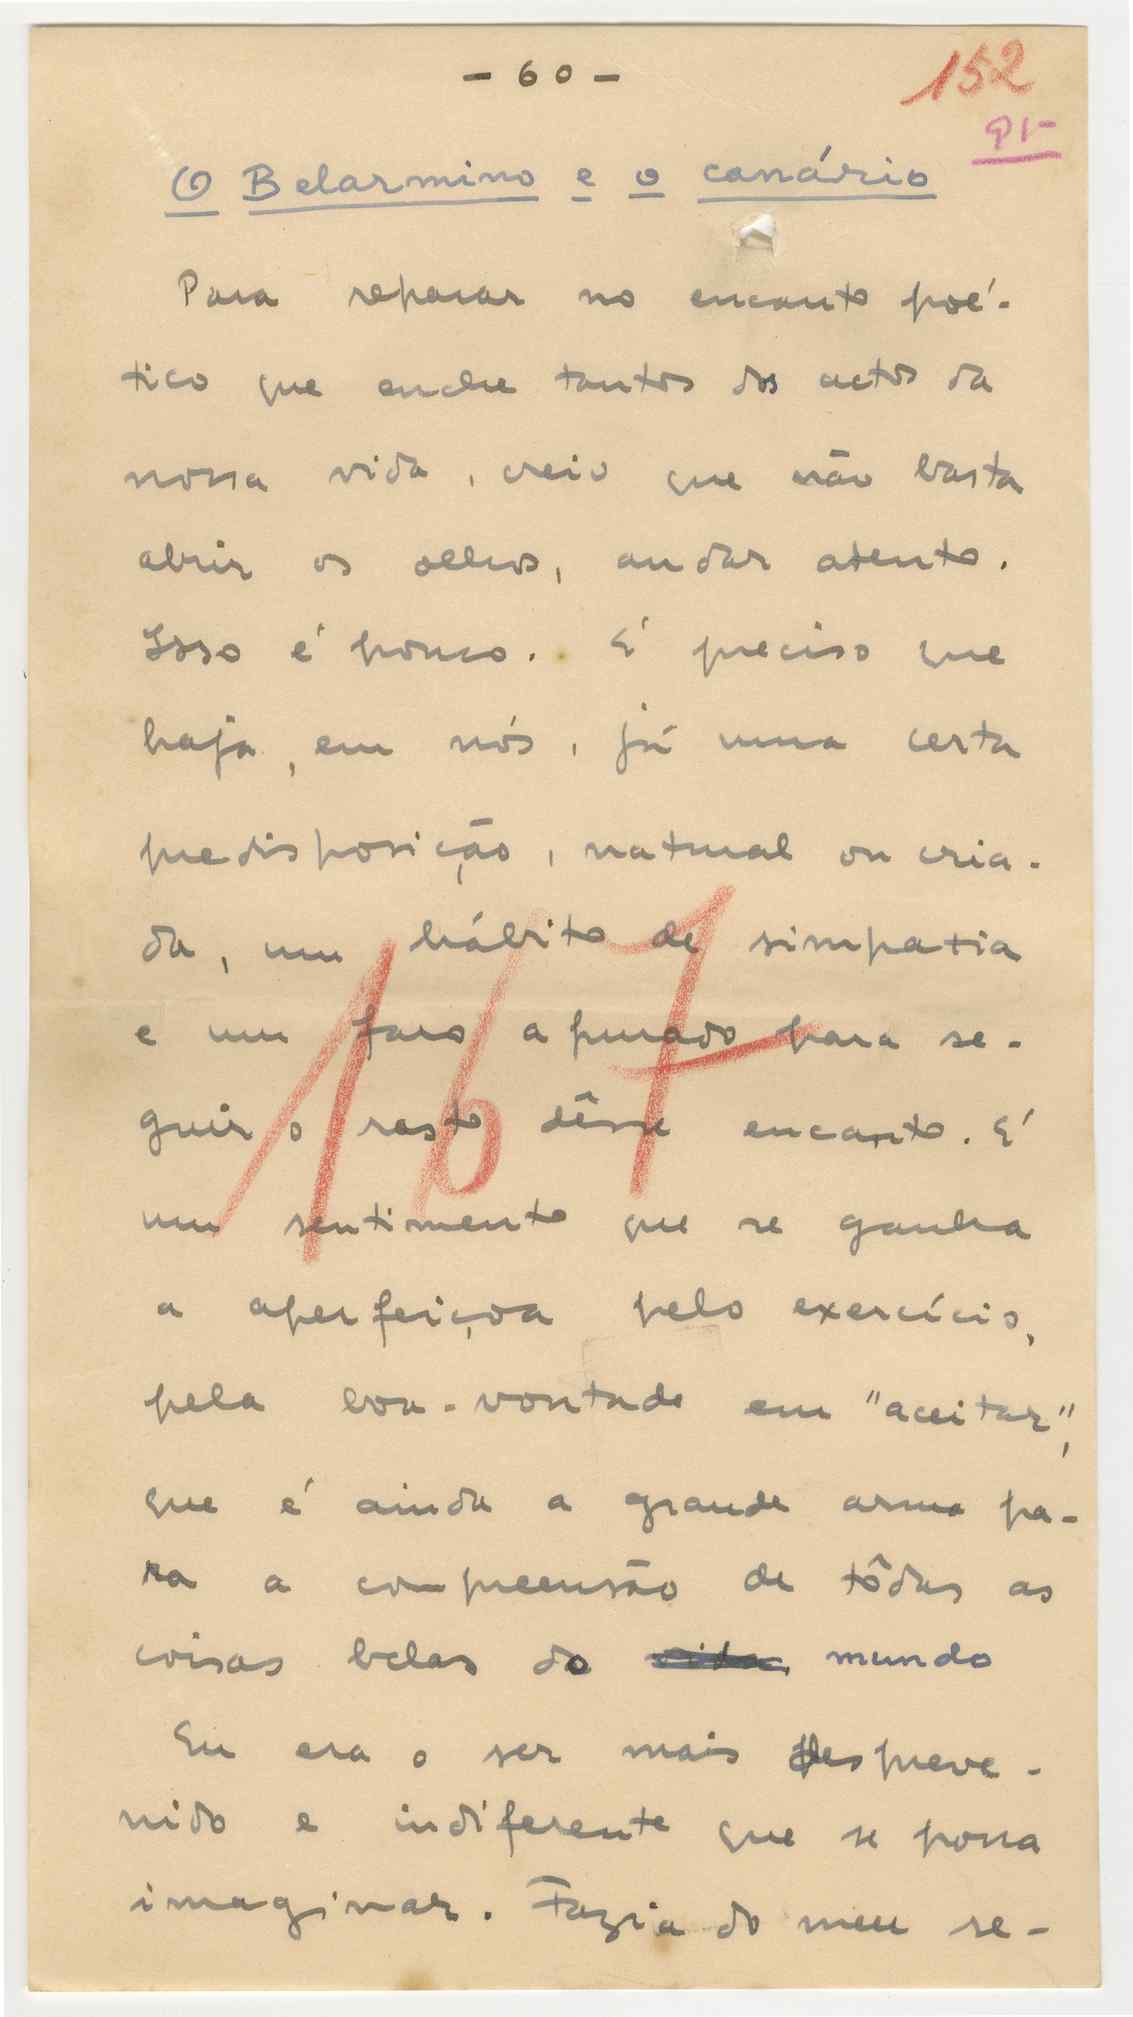 - 60 -
152
O Belarmino e o canário
Para reparar no encanto poé-
tico que enche tantos dos actos da
nossa vida, creio que não basta
abrir os olhos, andar atento.
Isso é pouco. É preciso que
haja, em nós, já uma certa
predisposição, natural ou cria-
da, um hábito de simpatia
e um faro apurado para se-
guir o rasto dêsse encanto. É
167
um sentimento que se ganha
a aperfeiçoa pelo exercício,
pela boa-vontade em "aceitar",
que é ainda a grande arma pa-
ra a compreensão de tôdas as
coisas belas do vida mundo
Eu era o ser mais despreve-
nido e indiferente que se possa
imaginar. Fazia do meu se-